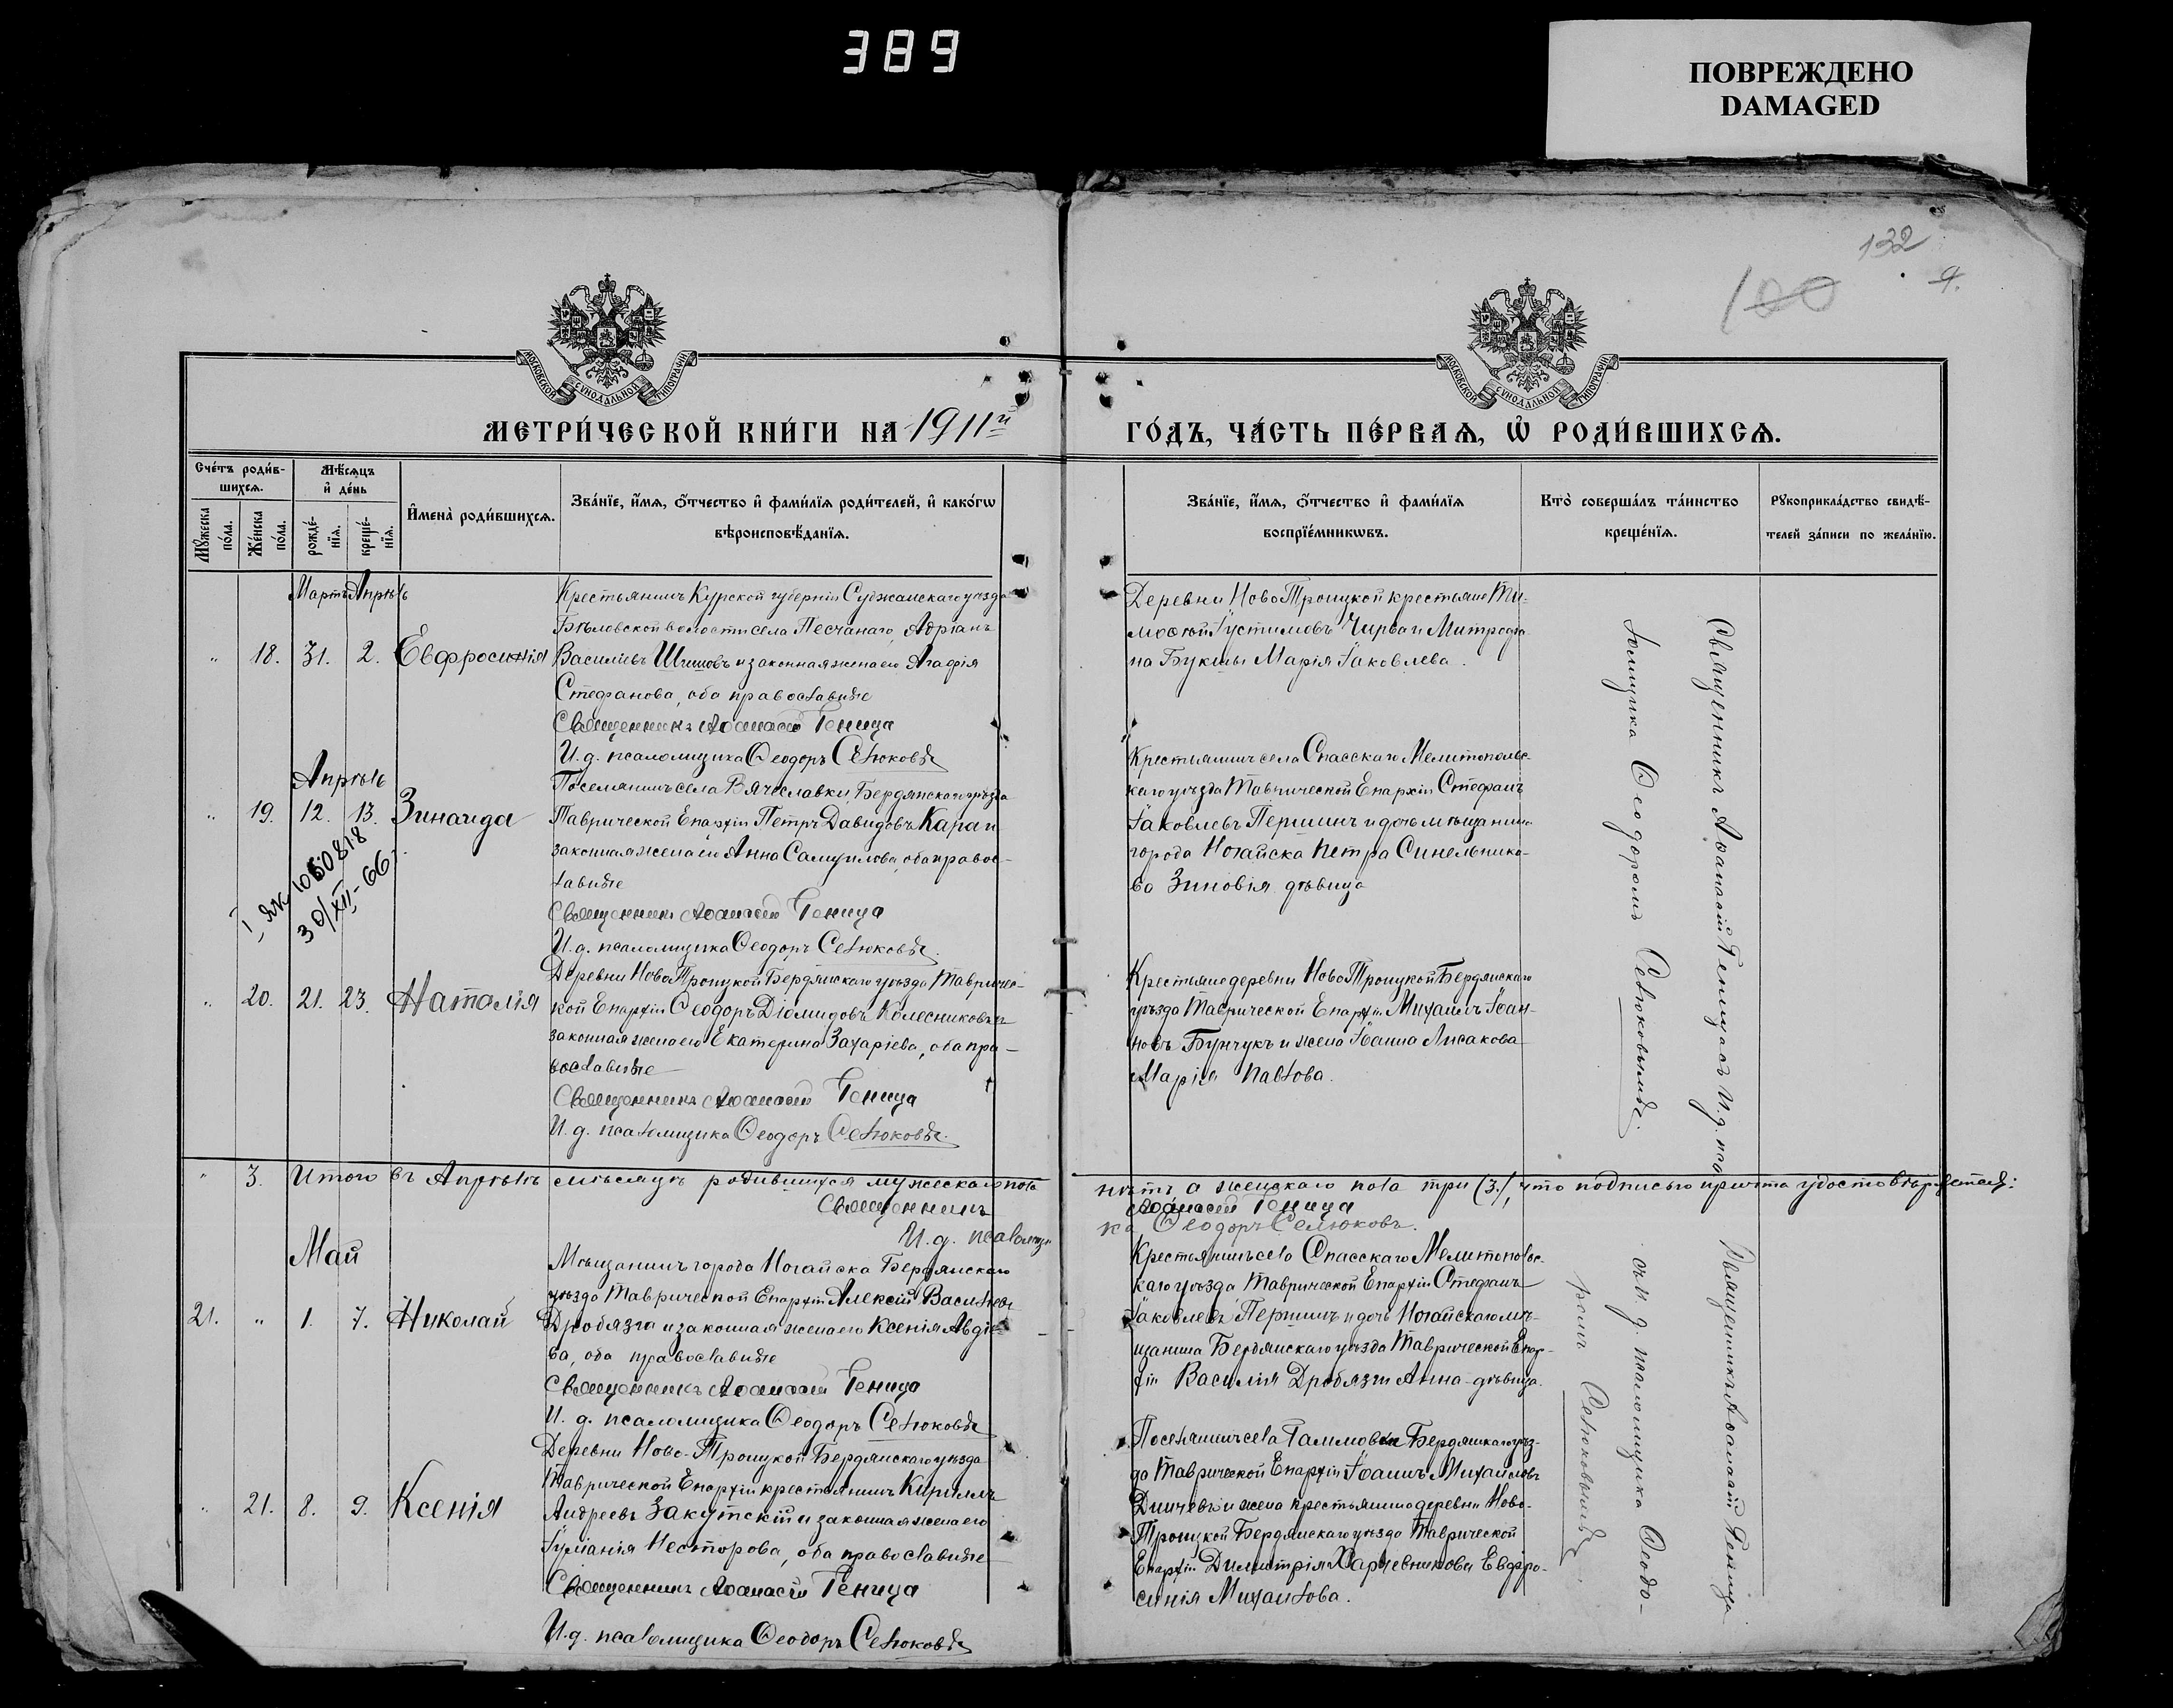 389
ПОВРЕЖДЕНО
DAMAGED
132
9.
100
МОСКОВСКОЙ СѴНОДАЛЬНОЙ ТИПОГРАФІИ
МОСКОВСКОЙ СѴНОДАЛЬНОЙ ТИПОГРАФІИ
МЕТРИ́ЧЕСКОЙ КНИ́ГИ НА 1911й
ГО́ДЪ, ЧА́СТЬ ПЕ́РВАѦ, Ѡ҆ РОДИ́ВШИХСѦ.
Сче́тъ роди́в-
шихсѧ.
Мѣ́сѧцъ
и҆ де́нь
Мꙋ́жеска
по́ла.
Же́нска
по́ла.
рожде́-
нїѧ.
креще́-
нїѧ.
И҆мена̀ роди́вшихсѧ.
Зва́нїе, и҆́мѧ, ѻ҆́тчество и҆ фами́лїѧ роди́телей, и҆ како́гѡ
вѣроисповѣ́данїѧ.
Зва́нїе, и҆́мѧ, ѻ҆́тчество и҆ фами́лїѧ
воспрїе́мникѡвъ.
Кто̀ соверша́лъ та́инство
креще́нїѧ.
Рꙋкоприкла́дство свидѣ́-
телей за́писи по жела́нїю.
Мартъ Апрѣль
„ 18. 31. 2. Евфросинія
Крестьянинъ Курской губерніи Суджанскаго уѣзда
Бѣловской волости села Песчанаго Адріанъ
Василіевъ Шишовъ и законная жена его Агафія
Стефанова, оба православные
Священникъ Аѳанасій Геница
И. д. псаломщика Ѳеодоръ Селюковъ
Деревни НовоТроицкой крестьяне Ти-
моѳей Іустимовъ Чирва и Митрофа-
на Букши Марія Іаковлева.
Апрѣль
„ 19. 12. 13. Зинаида
Поселянинъ села Вячеславки, Бердянскаго уѣзда
Таврической Епархіи Петръ Давидовъ Кара и
законная жена его Анна Самуилова, оба правос-
лавные
Священникъ Аѳанасій Геница
И. д. псаломщика Ѳеодоръ Селюковъ.
I ЯК 1050818
30/XII-66
Крестьянинъ села Спасскаго Мелитопольс-
каго уѣзда Таврической Епархіи Стефанъ
Іаковлевъ Першинъ и дочь мѣщанина
города Ногайска Петра Синельнико-
ва Зиновія дѣвица
„ 20. 21. 23. Наталія
Деревни НовоТроицкой Бердянскаго уѣзда Тавричес-
кой Епархіи Ѳеодоръ Діомидовъ Колесниковъ и
законная жена его Екатерина Захаріева, оба пра-
вославные
Священникъ Аѳанасій Геница
И. д. псаломщика Ѳеодоръ Селюковъ.
Крестьяне деревни НовоТроицкой Бердянскаго
уѣзда Таврической Епархіи Михаилъ Іоан-
новъ Бунчукъ и жена Іоанна Лисакова
Марія Павлова.
Священникъ Аѳанасій Геница съ И. д. пса-
ломщика Ѳеодоромъ Селюковымъ.
„ 3. Итого въ Апрѣлѣ мѣсяцѣ родившихся мужескаго пола
нѣтъ а женскаго пола три (3.), что подписью причта удостовѣряется:
Священникъ Аѳанасій Геница
И. д. псаломщи-
ка Ѳеодоръ Селюковъ.
Май
21. „ 1. 7. Николай
Мѣщанинъ города Ногайска Бердянскаго
уѣзда Таврической Епархіи Алексій Васильевъ
Дробязга и законная жена его Ксенія Авдіе-
ва, оба православные
Священникъ Аѳанасій Геница
И. д. псаломщика Ѳеодоръ Селюковъ
Крестьянинъ села Спасскаго Мелитопольс-
каго уѣзда Таврической Епархіи Стефанъ
Іаковлевъ Першинъ и дочь Ногайскаго мѣ-
щанина Бердянскаго уѣзда Таврической Епар-
хіи Василія Дробязги Анна-дѣвица.
„ 21. 8. 9. Ксенія
Деревни Ново-Троицкой Бердянскаго уѣзда
Таврической Епархіи крестьянинъ Кириллъ
Андреевъ Закутскій и законная жена его
Іуліанія Несторова, оба православные
Священникъ Аѳанасій Геница
И. д. псаломщика Ѳеодоръ Селюковъ
Поселянинъ села Бердянскаго уѣз-
да Таврической Епархіи Іоаннъ Михаиловъ
и жена крестьянина деревни Ново-
Троицкой Бердянскаго уѣзда Таврической
Епархіи Димитрія Харчевникова Евфро-
синія Михаилова.
Священникъ Аѳанасій Геница
съ И. д. псаломщика Ѳеодо-
ромъ Селюковымъ.